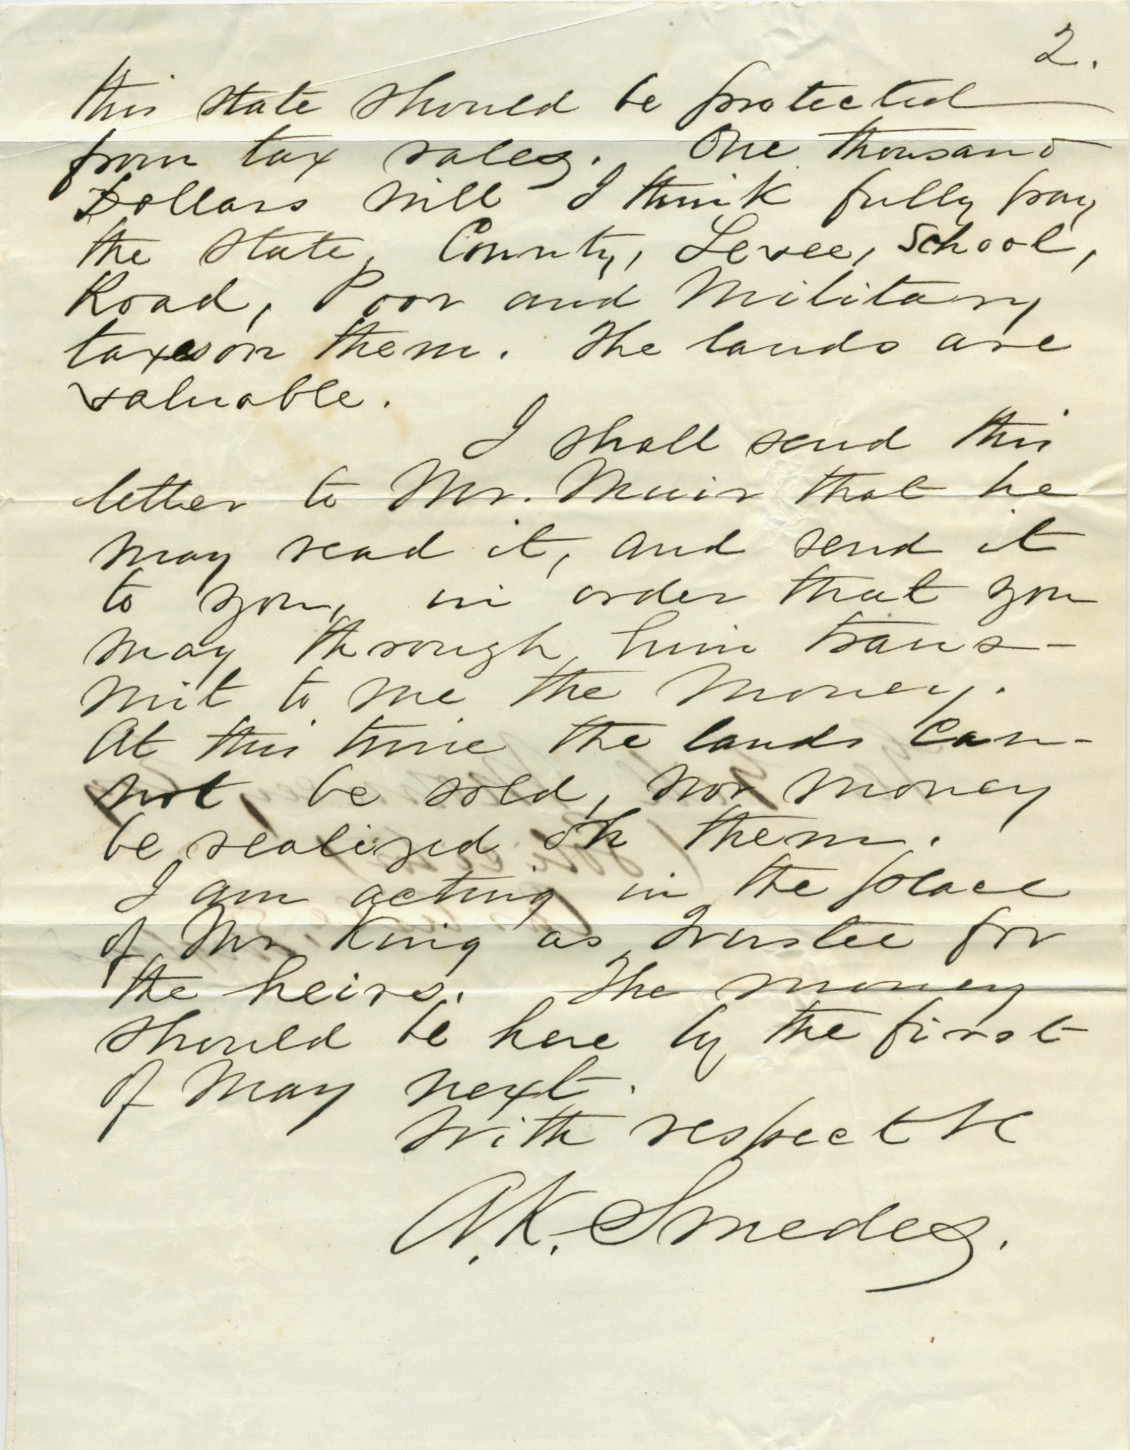 2.
this state should be protected
from tax sales. One thousand
Dollars will I think fully pay
the State, County, Levee, School,
Road, Poor and Military
taxes on them. The lands are
valuable.
I shall send this
letter to Mr. Muir that he
may read it, and send it
to you, in order that you
may through him trans-
mit to me the money.
At this time the lands can-
not be sold, nor money
be realized on them.
I am acting in the place
of Mr King as Trustee for
the heirs. The money
should be here by the first
of May next.
With respect &c
A.K. Smedes.